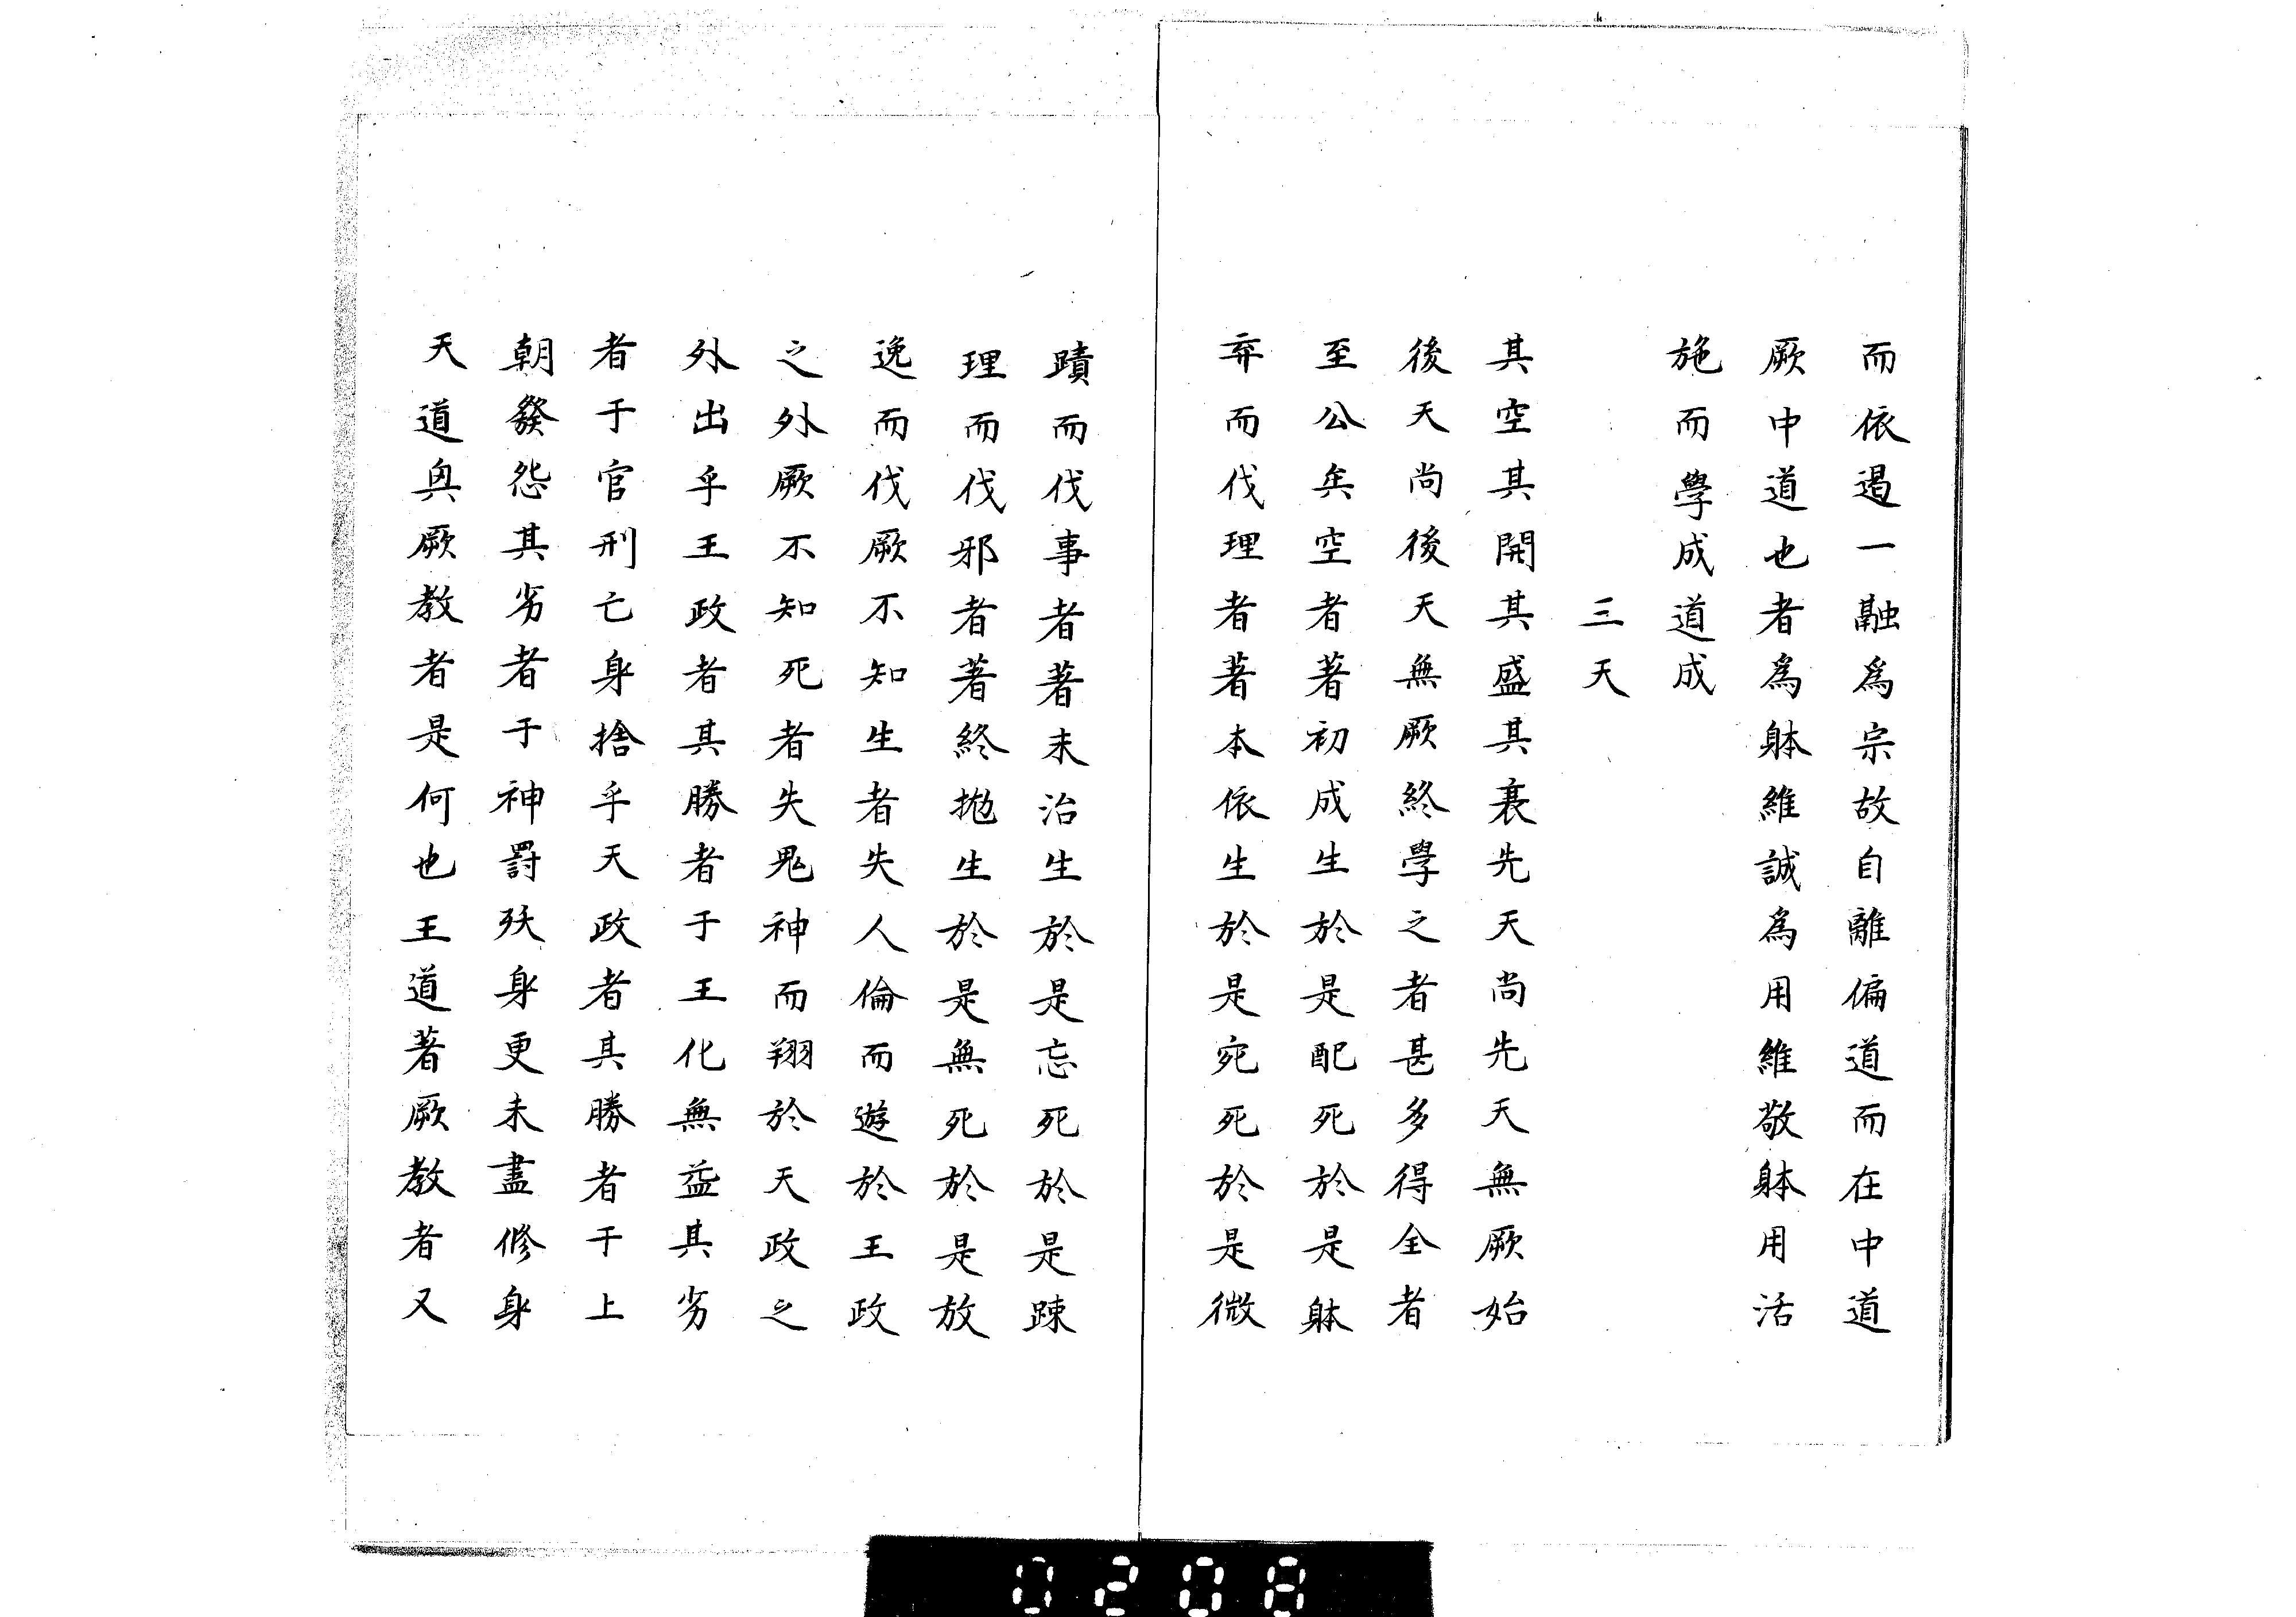 而依過一融爲宗故自離偏道而在中道
厥中道也者爲躰維誠爲用維敬躰用活
施而學成道成
三天
其空其開其盛其衰先天尚先天無厥始
後天尚後天無厥終學之者甚多得全者
至公矣空者著初成生於是配死於是躰
弃而伐理者著本依生於是宛死於是微
蹟而伐事者著末治生於是忘死於是踈
理而伐邪者著終抛生於是無死於是放
逸而伐厥不知生者失人倫而遊於王政
之外厥不知死者失鬼神而翔於天政之
外出乎王政者其勝者于王化無益其劣
者于官刑亡身捨乎天政者其勝者于上
朝發怨其劣者于神罸殀身更未盡修身
天道與厥教者是何也王道著厥教者又
0208